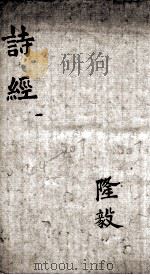 詩經
一
隆毅
mtoou.info